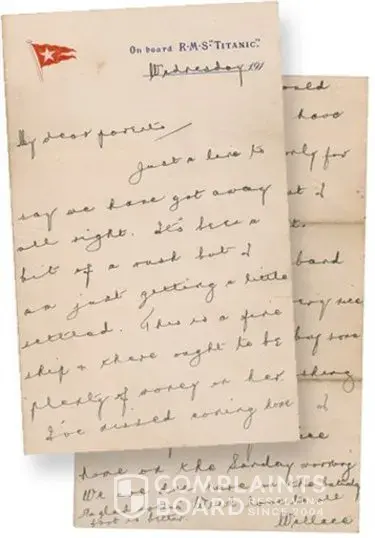 On board R·M·S·"TITANIC".
Wednesday 191
My dear parents
Just a line to
say we have got away
all right. It's been a
bit of a rush but I
am just getting a little
settled. This is a fine
ship & there ought to be
plenty of money on her.
I've missed coming home
have
only for
I
band
very nice
I
home on the Sunday morning
We are due here on the Saturday
foot is better.
Wallace
COMPLAINTS
BOARD RESOLVING
SINCE 2004